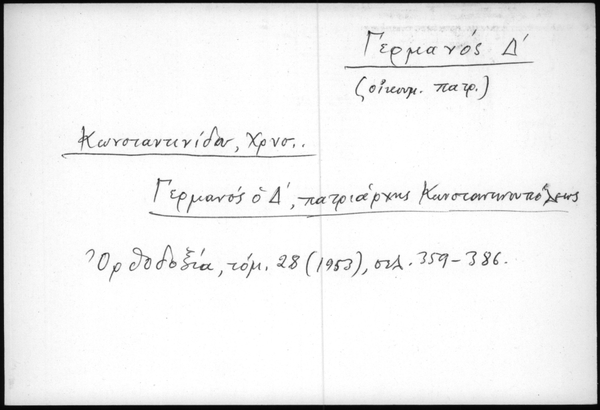 Γερμανός Δ'
(οἰκουμ. πατρ.)
Κωνσταντινίδου, Χρυσ..
Γερμανός ὁ Δ', πατριάρχης Κωνσταντινουπόλεως
Ὀρθοδοξία, τόμ. 28 (1953), σελ. 359-386.